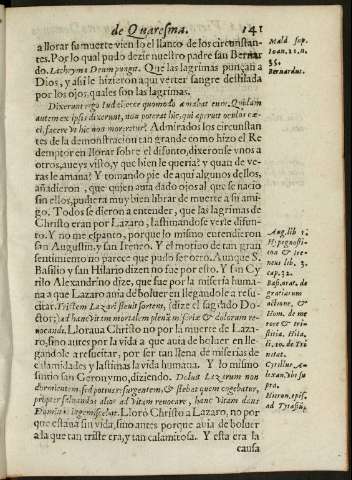 de Quaresma. 141
a llorar su muerte viendo el llanto de los circunstan-
tes. Por lo qual pudo dezir nuestro padre san Bernar
do. Lachryma Deum pungit. Que las lagrimas punçan a
Dios, y assi le hizieron aqui verter sangre destilada
por los ojos, quales son las lagrimas.
Dixerunt ergo Iudei: ecce quomodo amabat eum. Quidam
autem ex ipsis dixerunt, non poterat hic, qui aperuit oculos cæ-
ci, facere vt hic non moreretur? Admirados los circunstan
tes de la demonstracion tan grande como hizo el Re
demptor en llorar sobre el difunto, dixeronse vnos a
otros, aueys visto, y que bien le queria? y quan de ve-
ras le amaua? Y tomando pie de aqui algunos dellos,
añadieron, que quien auia dado ojos al que se nacio
sin ellos, pudiera muy bien librar de muerte a su ami-
go. Todos se dieron a entender, que las lagrimas de
Christo eran por Lazaro, lastimandose verle difun-
to. Y no me espanto, porque lo mismo entendieron
san Augustin, y san Ireneo. Y el motiuo de tan gran
sentimiento no parece que pudo ser otro. Aunque S.
Basilio y san Hilario dizen no fue por esto. Y san Cy
rilo Alexandrino dize, que fue por la miseria huma-
na a que Lazaro auia de boluer en llegandole a resu-
citar. Tristem Lazari statum fortem, (dize el sagrado Do-
ctor;) ad hanc vitam mortalem plenã miseriæ & dolorum re-
uocandi. Lloraua Christo no por la muerte de Laza-
ro, sino antes por la vida a que auia de boluer en lle-
gandole a resucitar, por ser tan llena de miserias de
calamidades y lastimas la vida humana. Y lo mismo
sintio san Geronymo, diziendo. Doluit Lazarum non
dormientem, sed potius resurgentem, & flebat quem cogebatur,
propter saluandos alios ad vitam reuocare, hanc vitam dans
Dominus ingemiscebat. Lloró Christo a Lazaro, no por
que estaua sin vida, sino antes porque auia de boluer
a la que tan triste era, y tan calamitosa. Y esta era la
causa
Mald. sup.
Ioan. 11. n.
35.
Bernardus.
Aug. lib 1.
Hypognosti-
cõn & Ire-
neus lib. 3.
cap. 32.
Basi. orat. de
gratiarum
actione, &
Hom. de me
rore & tri-
stitia. Hila.
li. 10. de Tri
nitat.
Cyrillus A-
lexan. vbi su
pra.
Hieron. epis.
ad Tyrasiũ.